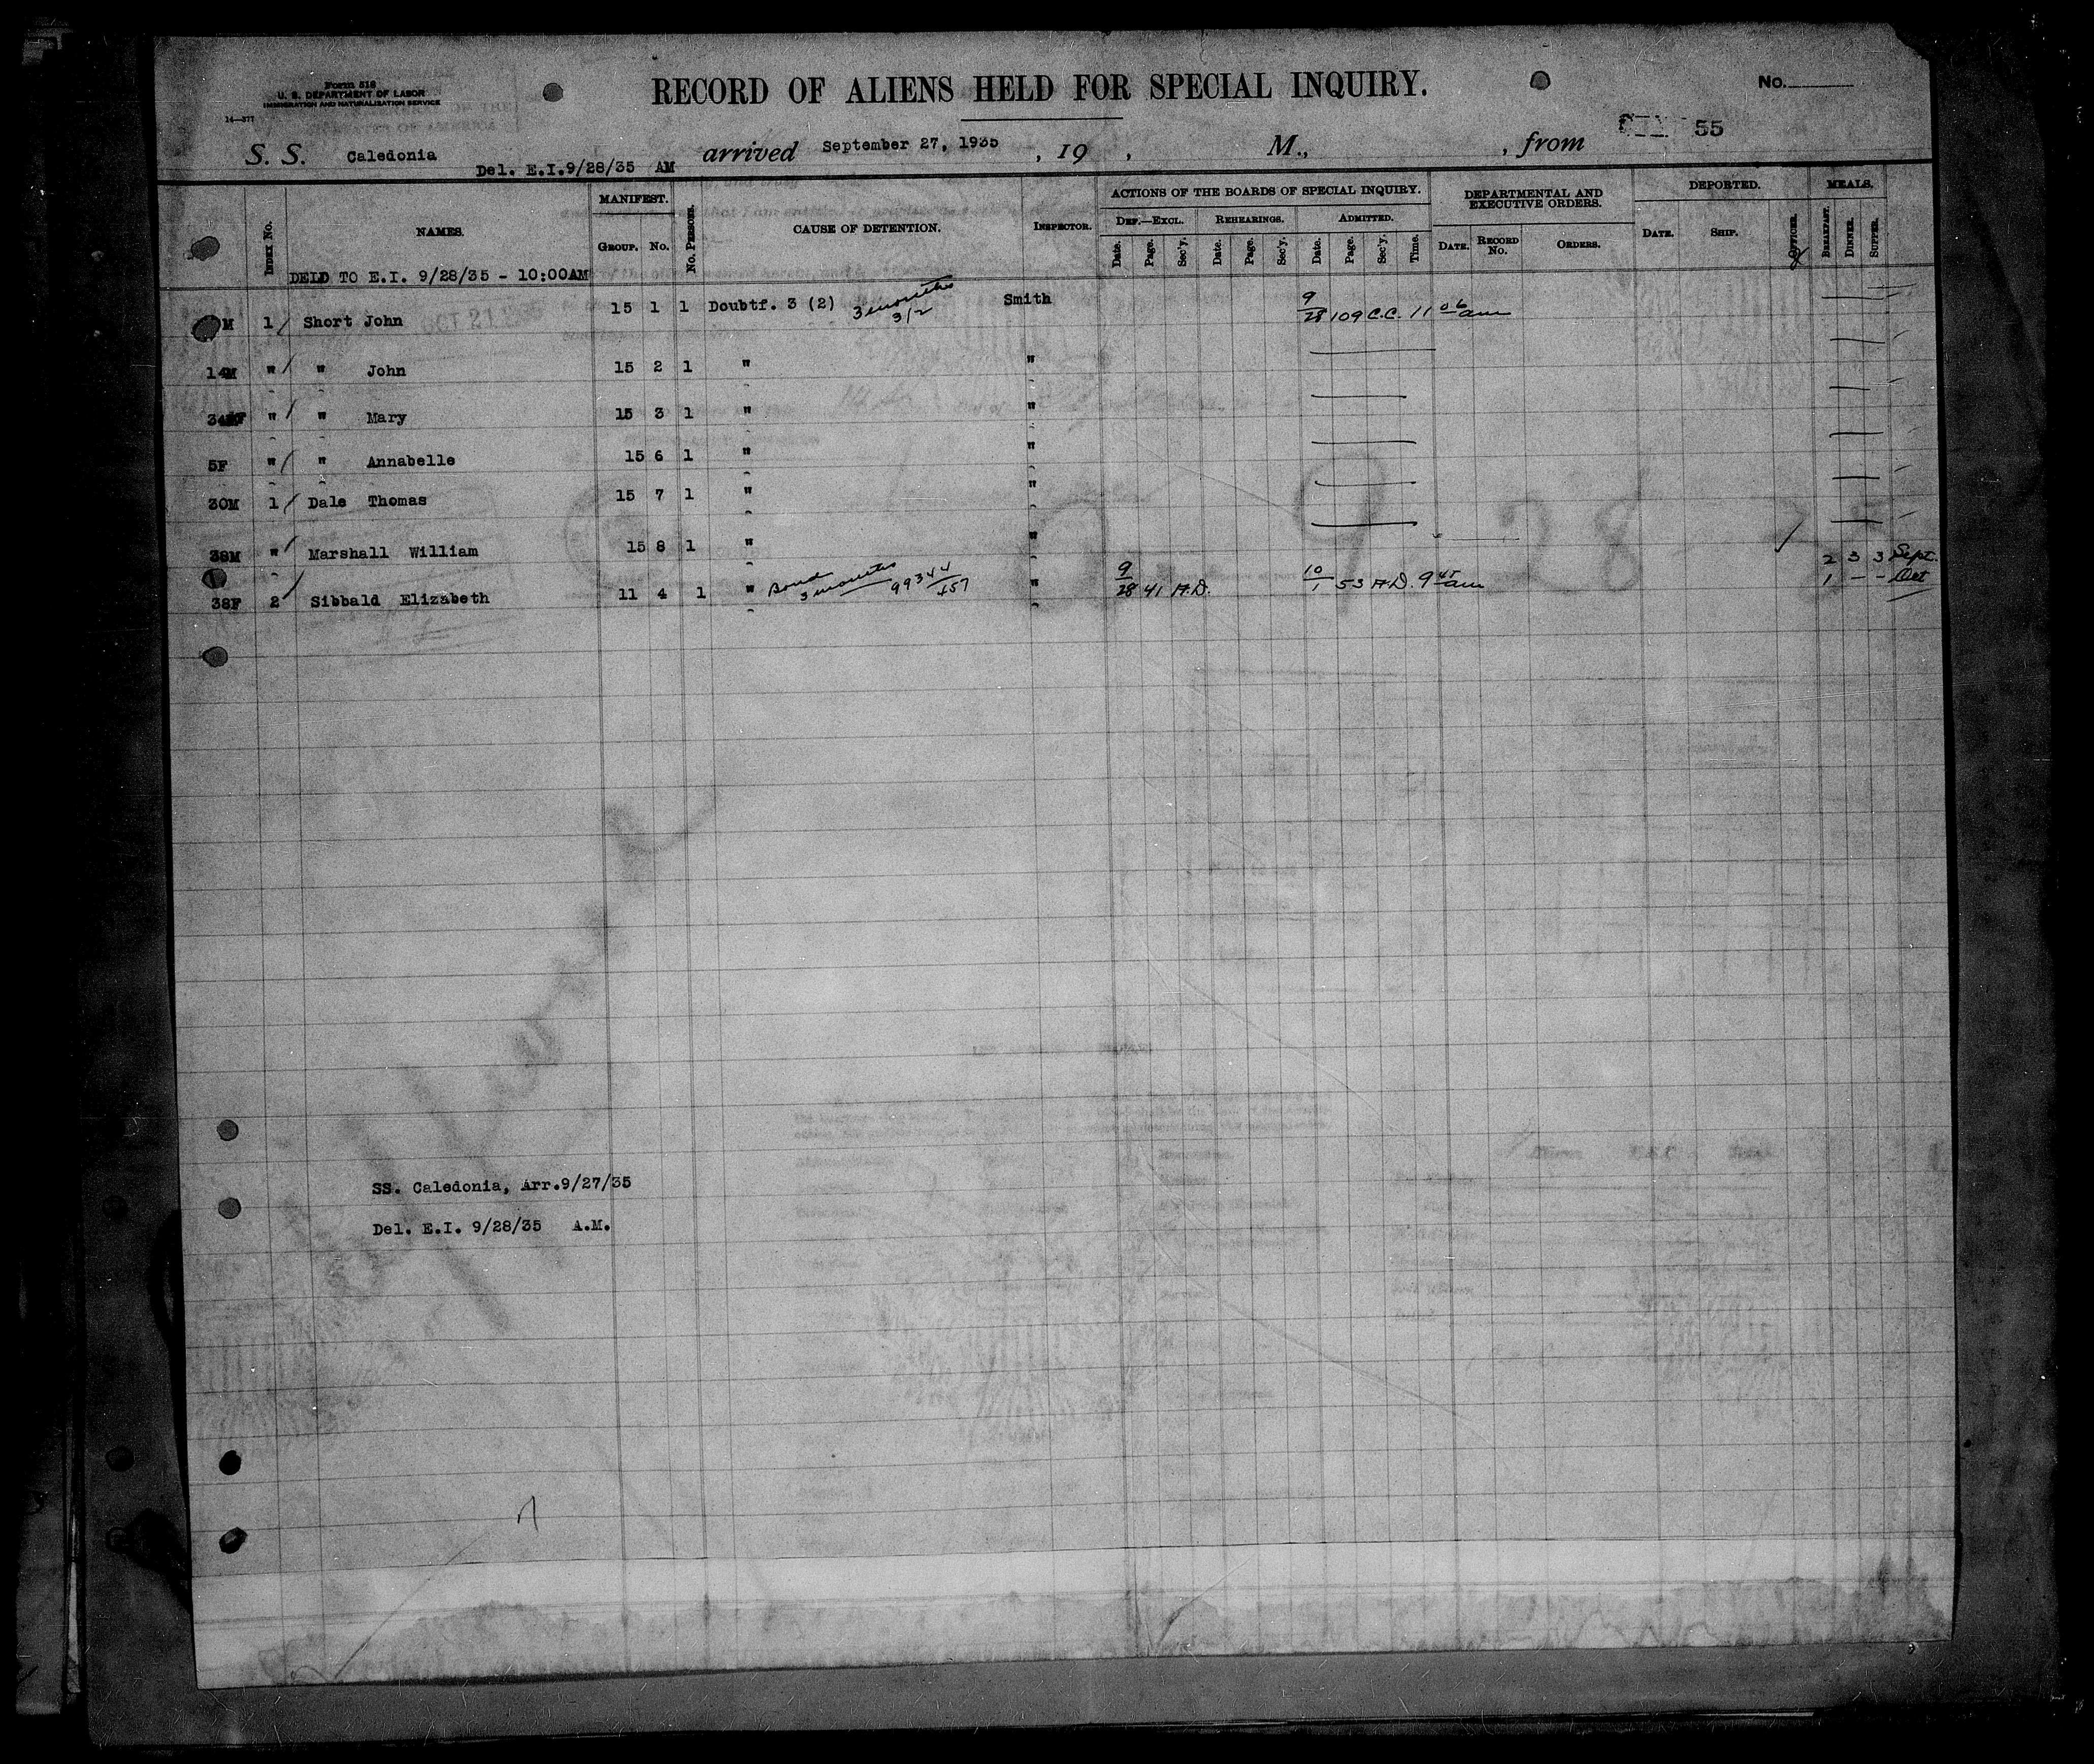 Form 518
U. S. DEPARTMENT OF LABOR
IMMIGRATION AND NATURALIZATION SERVICE
14—377
RECORD OF ALIENS HELD FOR SPECIAL INQUIRY.
No.
55
S. S. Caledonia arrived September 27, 1935 , 19 , M., , from
Del. E.I.9/28/35 AM
INDEX No. NAMES. MANIFEST. GROUP. No. No. PERSONS. CAUSE OF DETENTION. INSPECTOR. ACTIONS OF THE BOARDS OF SPECIAL INQUIRY. DEF.—EXCL. Date. Page. Sec'y. REHEARINGS. Date. Page. Sec'y. ADMITTED. Date. Page. Sec'y. Time. DEPARTMENTAL AND EXECUTIVE ORDERS. DATE. RECORD No. ORDERS. DEPORTED. DATE. SHIP. OFFICER. MEALS. BREAKFAST. DINNER. SUPPER.
DELD TO E.I. 9/28/35 - 10:00AM
M 1 Short John 15 1 1 Doubtf. 3 (2) 3 months 3/2 Smith 9/28 109 C.C. 11 06 am
14M " " John 15 2 1 " "
" " Mary 15 3 1 " "
5F " " Annabelle 15 6 1 " "
30M 1 Dale Thomas 15 7 1 " "
38M " Marshall William 15 8 1 " "
2 3 3 Sept.
38F 2 Sibbald Elizabeth 11 4 1 " Bond 3 months 99344/157 " 9/28 41 A.D. 10/1 53 A.D. 9 45 am 1 - - Oct
SS. Caledonia, Arr.9/27/35
Del. E.I. 9/28/35 A.M.